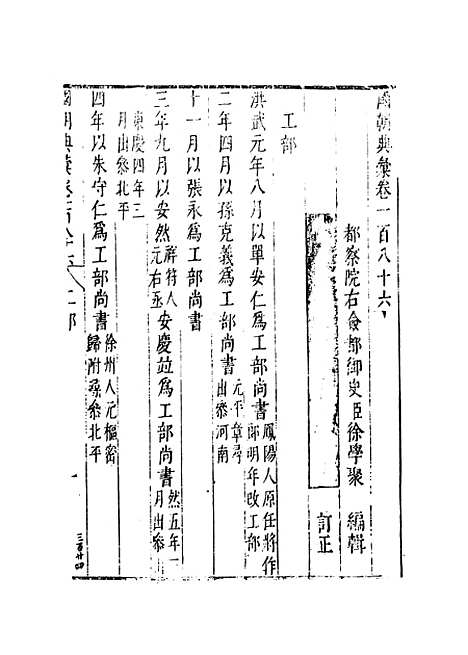 國朝典彙卷一百八十六
都察院右僉都御史臣徐學聚 編輯
訂正
工部
洪武元年八月以單安仁爲工部尚書鳳陽人原任將作
郎明年改工部
二年四月以孫克義爲工部尚書元平章尋
出參河南
十一月以張允爲工部尚書
三年九月以安然祥符人
元右丞安慶竝爲工部尚書然五年一
月出參
東慶四年三
月出參北平
四年以朱守仁爲工部尚書徐州人元樞密
歸附尋參北平
國朝典彙卷一百八十六 工部
一
三百廿四